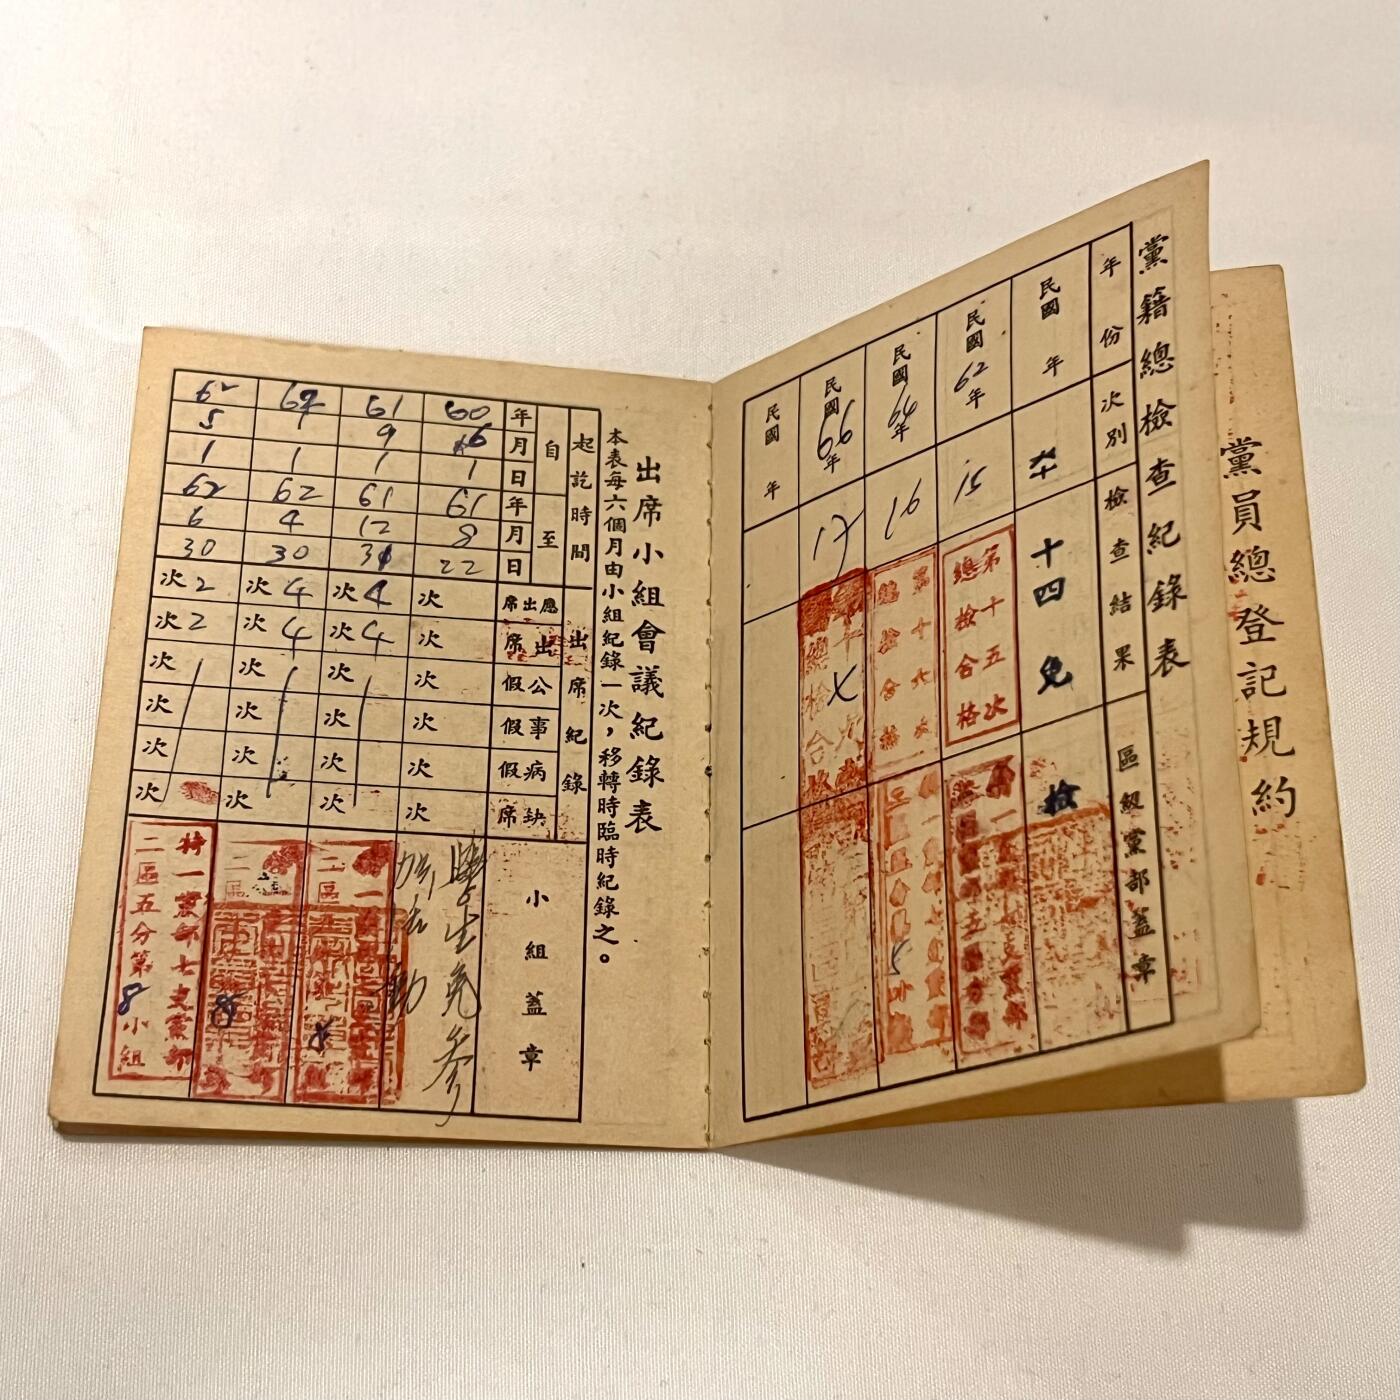 黨員總登記規約
黨籍總檢查紀錄表
年份
次別
檢查結果
區級黨部蓋章
民國 年
十四免檢
民國62年
15
第十五次
總檢合格
民國64年
16
第十六次
總檢合格
民國66年
17
民國 年
出席小組會議紀錄表
本表每六個月由小組紀錄一次,移轉時臨時紀錄之。
起訖時間
出席紀錄
小組蓋章
自
至
年
月
日
年
月
日
應出席
出席
公假
事假
病假
缺席
60
6
1
61
8
22
次
次
次
次
次
次
學生免參
加活動
61
9
1
61
12
31
次4
次4
次
次
次
次
62
1
1
62
4
30
次4
次4
次
次
次
次
62
5
1
62
6
30
次2
次2
次
次
次
次
特一黨部七支黨部
二區五分第8小組